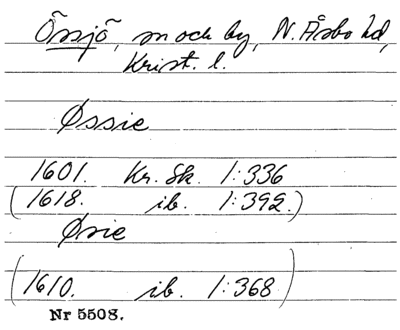 Össjö, sn och by, N. Åsbo hd,
Krist. l.
Øssie
1601. Kr. Sk. 1:336
(1618. ib. 1:392.)
Øsie
(1610. ib. 1:368)
Nr 5508.